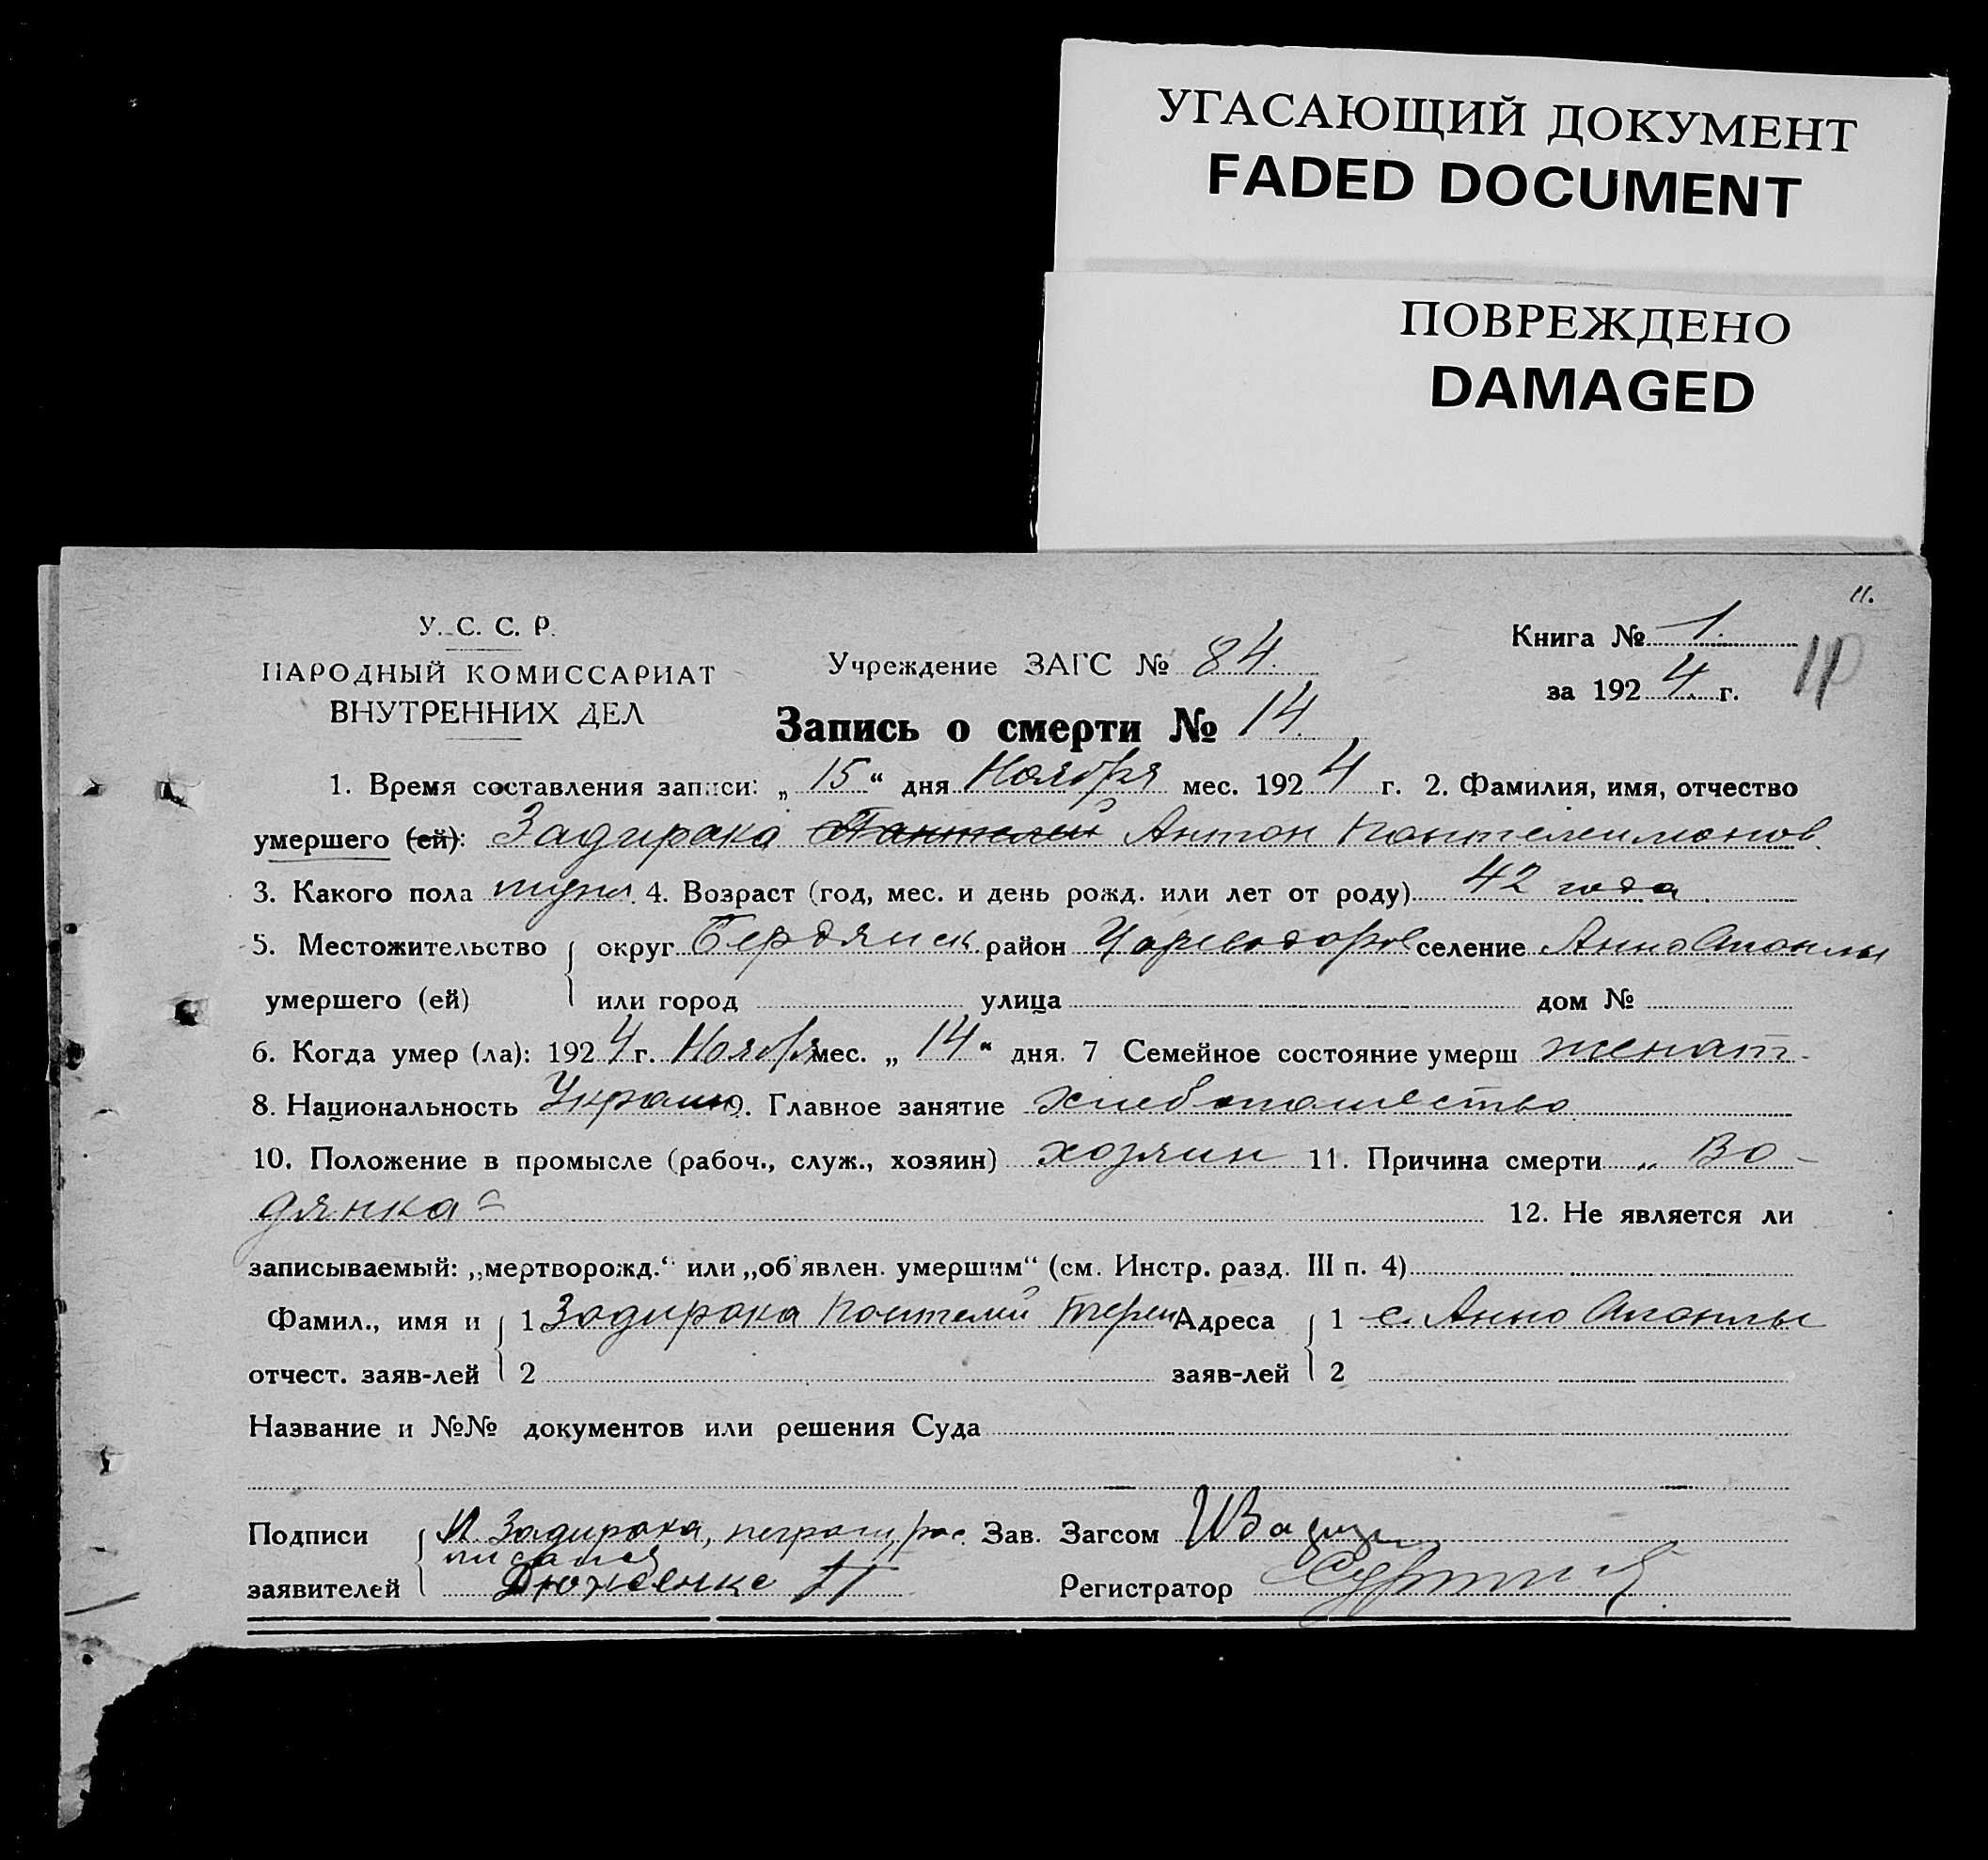 УГАСАЮЩИЙ ДОКУМЕНТ
FADED DOCUMENT
ПОВРЕЖДЕНО
DAMAGED
11.
У. С. С. Р.
НАРОДНЫЙ КОМИССАРИАТ
ВНУТРЕННИХ ДЕЛ
Учреждение ЗАГС № 84.
Книга № 1.
за 1924 г.
Запись о смерти № 14.
1. Время составления записи: „15“ дня Ноября мес. 1924 г. 2. Фамилия, имя, отчество
умершего (ей): Задирака Пантелей Антон Пантелеимонов.
3. Какого пола мужс. 4. Возраст (год, мес. и день рожд. или лет от роду) 42 года
5. Местожительство округ Бердянск район Цареводаров селение Анно Опанлы
умершего (ей) или город улица дом №
6. Когда умер (ла): 1924 г. Ноября мес. „14“ дня. 7 Семейное состояние умерш женат
8. Национальность Украин 9. Главное занятие хлебопашество
10. Положение в промысле (рабоч., служ., хозяин) хозяин 11. Причина смерти „Во-
дянка“ 12. Не является ли
записываемый: „мертворожд.“ или „об'явлен. умершим“ (см. Инстр. разд. III п. 4)
Фамил., имя и 1 Задирака Пантелей Адреса 1 с. Анно Опанлы
отчест. заяв-лей 2 заяв-лей 2
Название и №№ документов или решения Суда
Подписи Задирака, неграм, рас Зав. Загсом
писался
заявителей П Регистратор